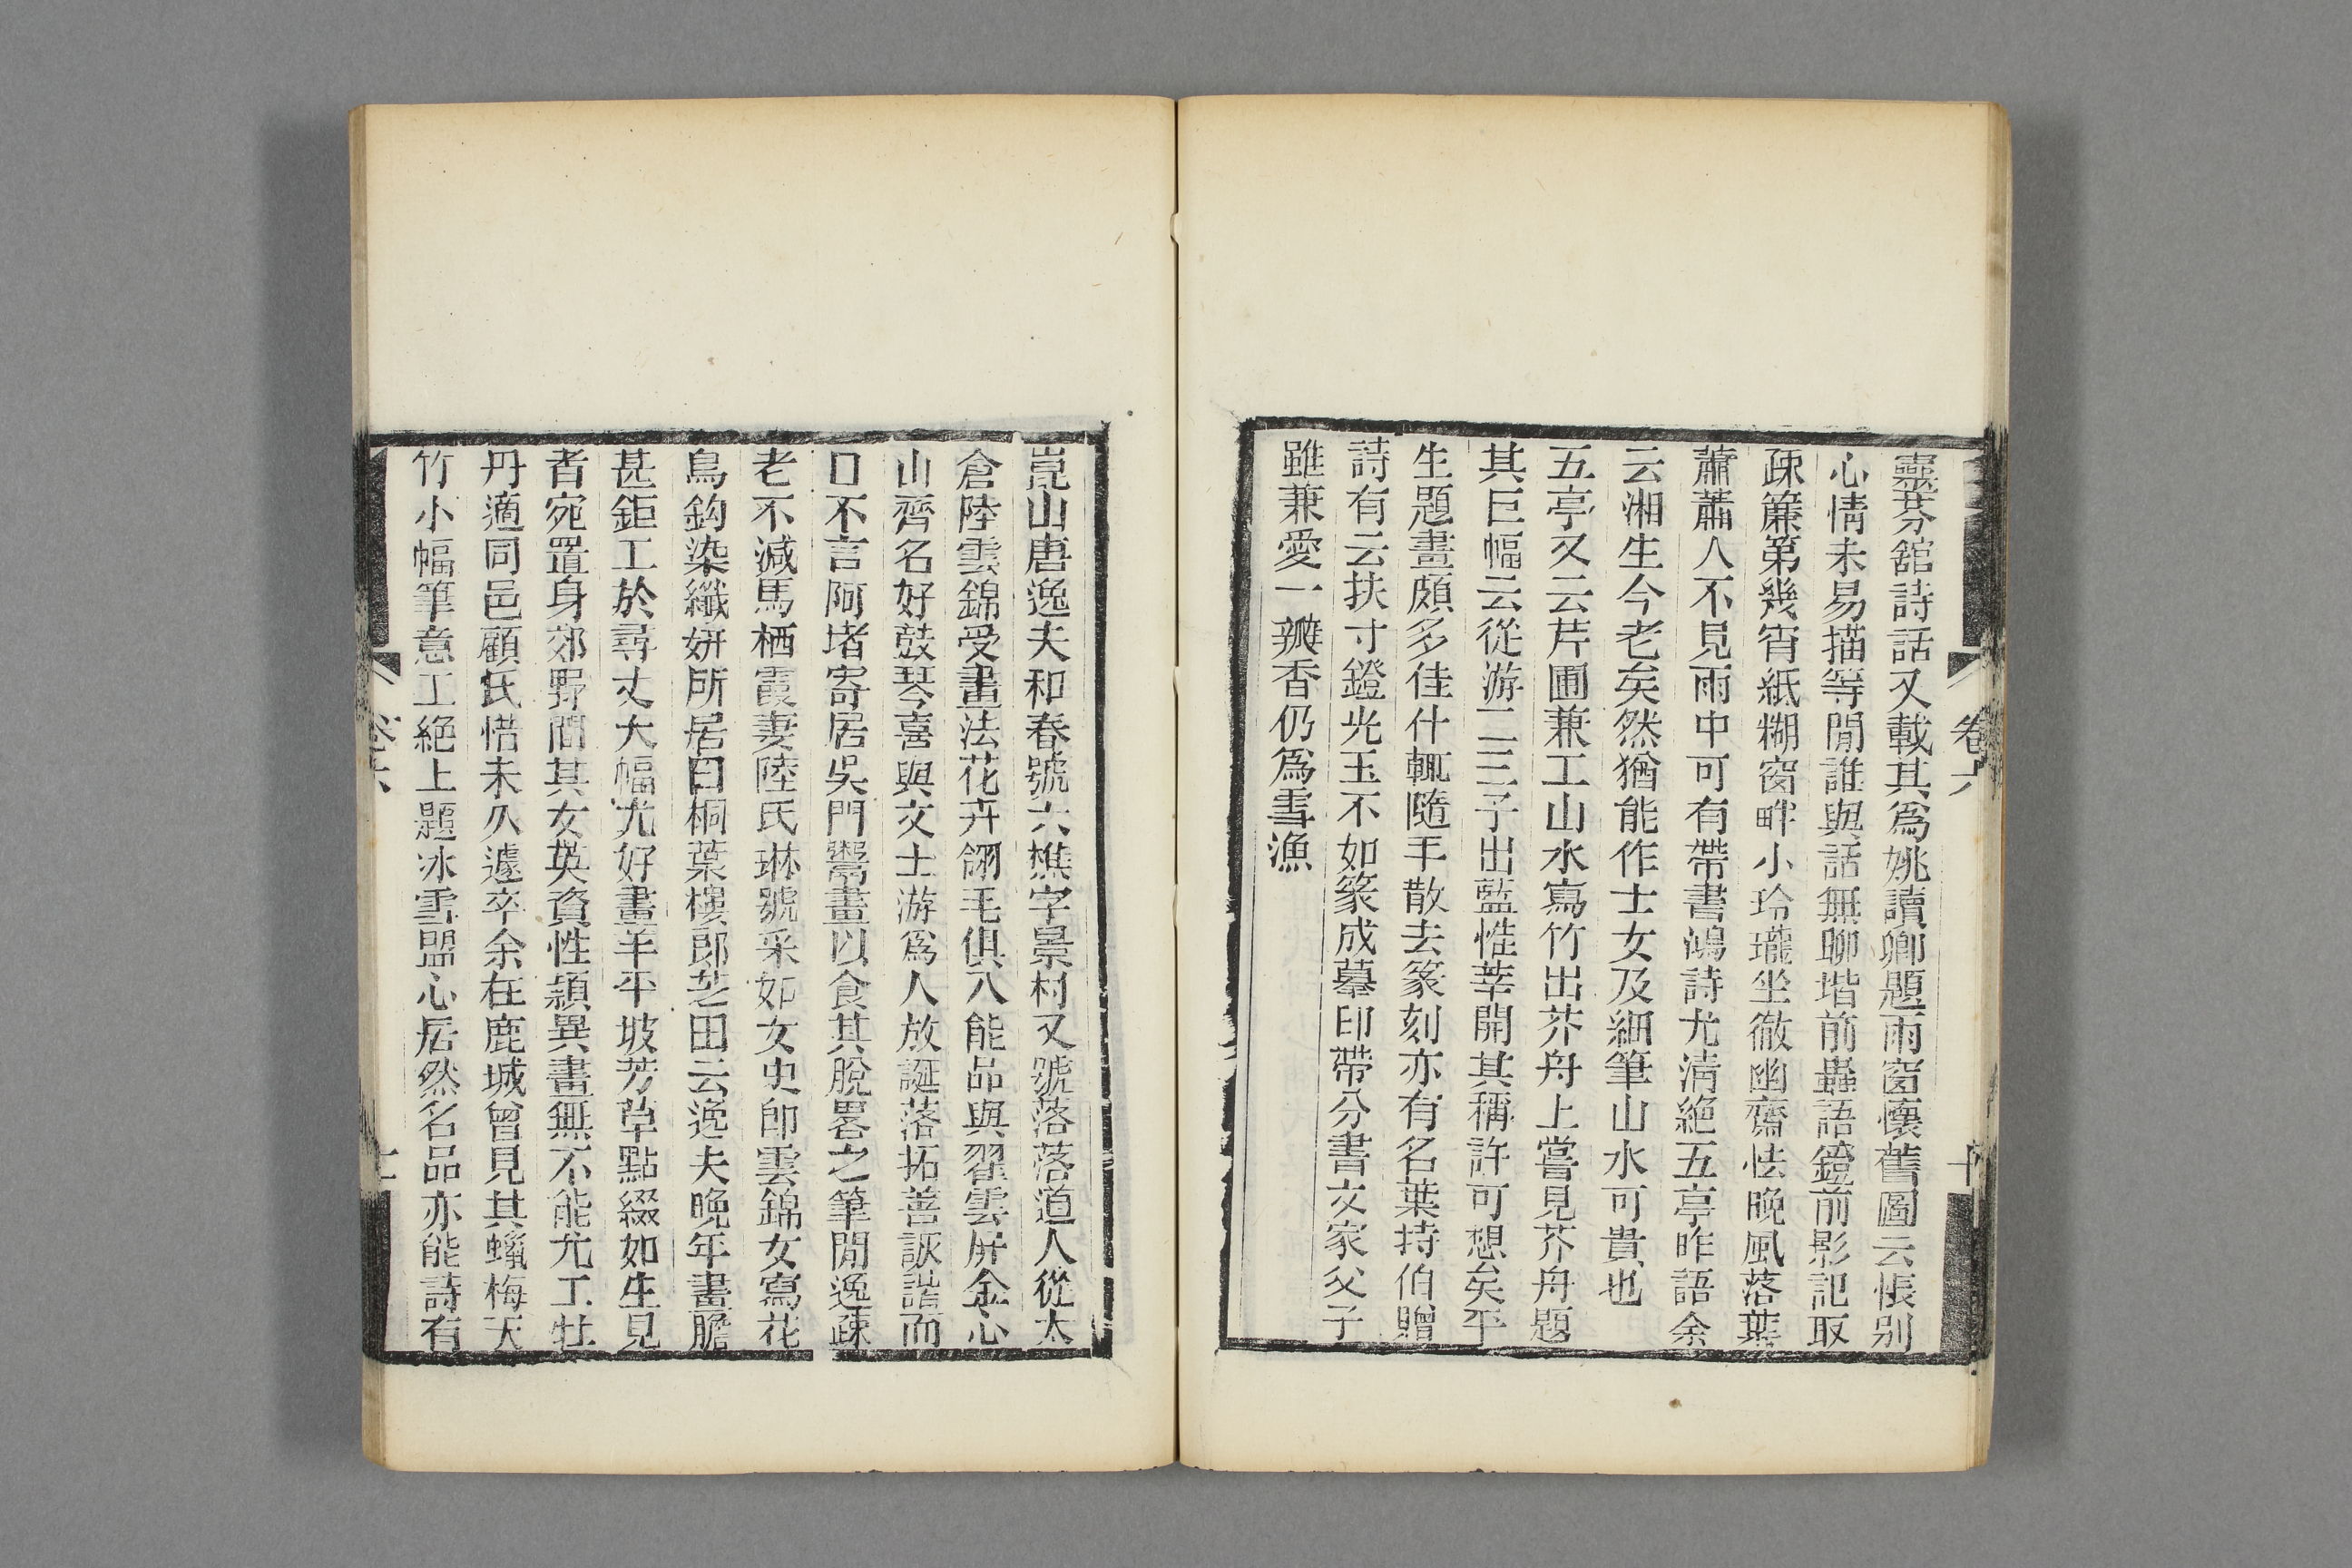 靈芬舘詩話又載其爲姚讀卿題雨窗懷舊圖云悵别
心情未易描等閒誰與話無聊堦前蟲語鐙前影記取
疎簾第幾宵紙糊窗畔小玲瓏坐徹幽齋怯晚風落葉
蕭蕭人不見雨中可有帶書鴻詩尤清絕五亭昨語余
云湘生今老矣然猶能作士女及細筆山水可貴也
五亭又云芹圃兼工山水寫竹出芥舟上嘗見芥舟題
其巨幅云從游二三子出藍惟莘開其稱許可想矣平
生題畫頗多佳什輒隨手散去篆刻亦有名葉持伯贈
詩有云扶寸鐙光玉不如篆成摹印帶分書文家父子
雖兼愛一瓣香仍爲雪漁
卷六
十
崑山唐逸夫和春號六樵字景村又號落落道人從太
倉陸雲錦受畫法花卉翎毛俱入能品與翟雲屏金心
山齊名好鼓琴喜與文士游爲人放誕落拓善詼諧而
口不言阿堵寄居吳門鬻畫以食其脫畧之筆閒逸疎
老不減馬栖霞妻陸氏琳號采如女史即雲錦女寫花
鳥鈎染纖妍所居曰桐葉樓郎芝田云逸夫晚年畫膽
甚鉅工於尋丈大幅尤好畫羊平坡芳草點綴如生見
者宛置身郊野間其女英資性頴異畫無不能尤工牡
丹適同邑顧氏惜未久遽卒余在鹿城曾見其蠟梅天
竹小幅筆意工絕上題冰雪盟心居然名品亦能詩有
卷六